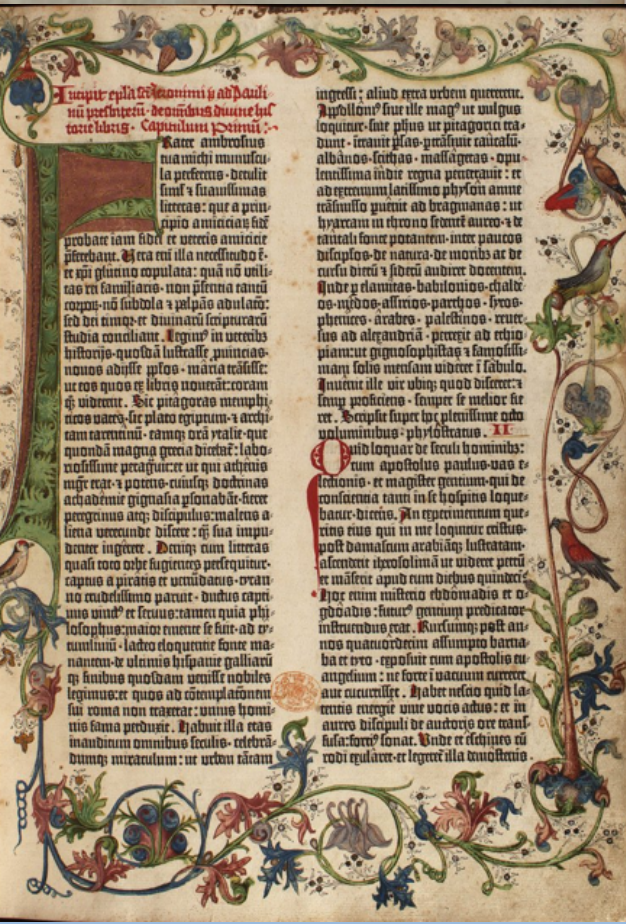 Incipit epl̃a sc̃i iheronimi p̃ ad Pauli
nū presbiterū · de om̃ibus diuine his
torie libris · Capitulum Primū :·
Frater ambrosius
tua michi munuscu-
la perferens · detulit
simꝉ ⁊ suauissimas
litteras : que a prin-
cipio amiciciaꝝ · fidẽ
probate iam fidei et veteris amicicie
p̃ferebant. Vera em̃ illa necessitudo ẽ ·
et xp̃i glutino copulata : quā nō vtili-
tas rei familiaris · nō p̃sentia tantū
corpoꝝ · nō subdola ⁊ palpās adulatō :
sed dei timor · et diuinaꝝ scripturarū
studia conciliant. Legim⁹ in veterib⁹
historijs · quosdā lustrasse ꝓuincias ·
nouos adijsse ppl̃os · maria trāsisse :
ut eos quos ex libris nouerāt : coram
qꝫ viderent. Sic pitagoras memphi-
ticos vates · sic plato egiptum · ⁊ archi-
tam tarentinū · eamqꝫ orā ytalie · que
quondā magna grecia dicebat̃ : labo-
riosissime peragrauit : et ut qui athenis
mgr̃ erat · ⁊ potens · cuiusqꝫ doctrinas
achademie gignasia ꝑsonabāt · fieret
peregrinus atqꝫ discipulus : malens a-
liena verecunde discere · qꝫ sua impu-
denter ingerere. Deniqꝫ cum litteras
quasi toto orbe fugientes persequitur ·
captus a piratis et venūdatus · tyran-
no crudelissimo paruit · ductus capti-
uus vinct⁹ et seruus : tamen quia phi-
losophus : maior emente se fuit · ad ty-
tumliuiū · lacteo eloquentie fonte ma-
nantem · de vltimis hispanie galliarū
qꝫ finibus quosdam venisse nobiles
legimus : et quos ad cōtemplacōnem
sui roma non traxerat : vnius homi-
nis fama perduxit. Habuit illa etas
inauditum omnibus seculis · celebrā-
dumqꝫ miraculum : ut vrbem tātam
ingressi : aliud extra vrbem quererent.
Apollonī⁹ siue ille mag⁹ ut vulgus
loquitur · siue phūs ut pitagorici tra-
dunt · intrauit ꝑsas · ꝑtrāsiuit caucasū ·
albanos · scithas · massagetas · opu-
lentissima indie regna penetrauit : et
ad extremum latissimo physon amne
trāsmisso ꝑuenit ad bragmanas : ut
hyarcam in throno sedentẽ aureo · ⁊ de
tantali fonte potantem · inter paucos
discipl̃os · de natura · de moribꝫ ac de
cursu dierū ⁊ siderū audiret docentem.
Inde ꝑ elamitas · babilonios · chalde-
os · medos · assirios · parthos · syros ·
phenices · arabes · palestinos · reuer-
sus ad alexandriā · perrexit ad ethio-
piam : ut gignosophistas ⁊ famosissi-
mam solis mensam videret ī sabulo.
Inuenit ille vir vbiqꝫ quod disceret : ⁊
semꝑ proficiens · semper se melior fie-
ret. Scripsit super hoc plenissime octo
voluminibus : phylostratus. II
Quid loquar de seculi hominibꝫ :
cum apostolus paulus · vas e-
lectionis · et magister gentium · qui de
conscientia tanti in se hospitis loque-
batur · dicens. An experimentum que-
ritis eius qui in me loquitur cristus.
post damascum arabiāqꝫ lustratam ·
ascenderit iherosolimā ut videret petrū
et māserit apud eum diebus quindeci.
Hoc enim misterio ebdomadis et o-
gdoadis : futur⁹ gentium predicator
instruendus erat. Rursumqꝫ post an-
nos quatuordecim assumpto barna-
ba et tyto · exposuit cum apostolis eu-
angelium : ne forte ī vacuum curreret
aut cucurrisset. Habet nescio quid la-
tentis energie viue vocis actus : et in
aures discipuli de auctoris ore trans-
fusa : forci⁹ sonat. Vnde et eschines cū
rodi exularet · et legeret̃ illa demosteris